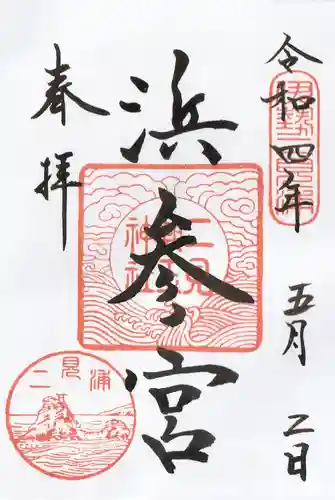 令和四年 五月二日
浜参宮
奉拝
二見
神社
二見浦